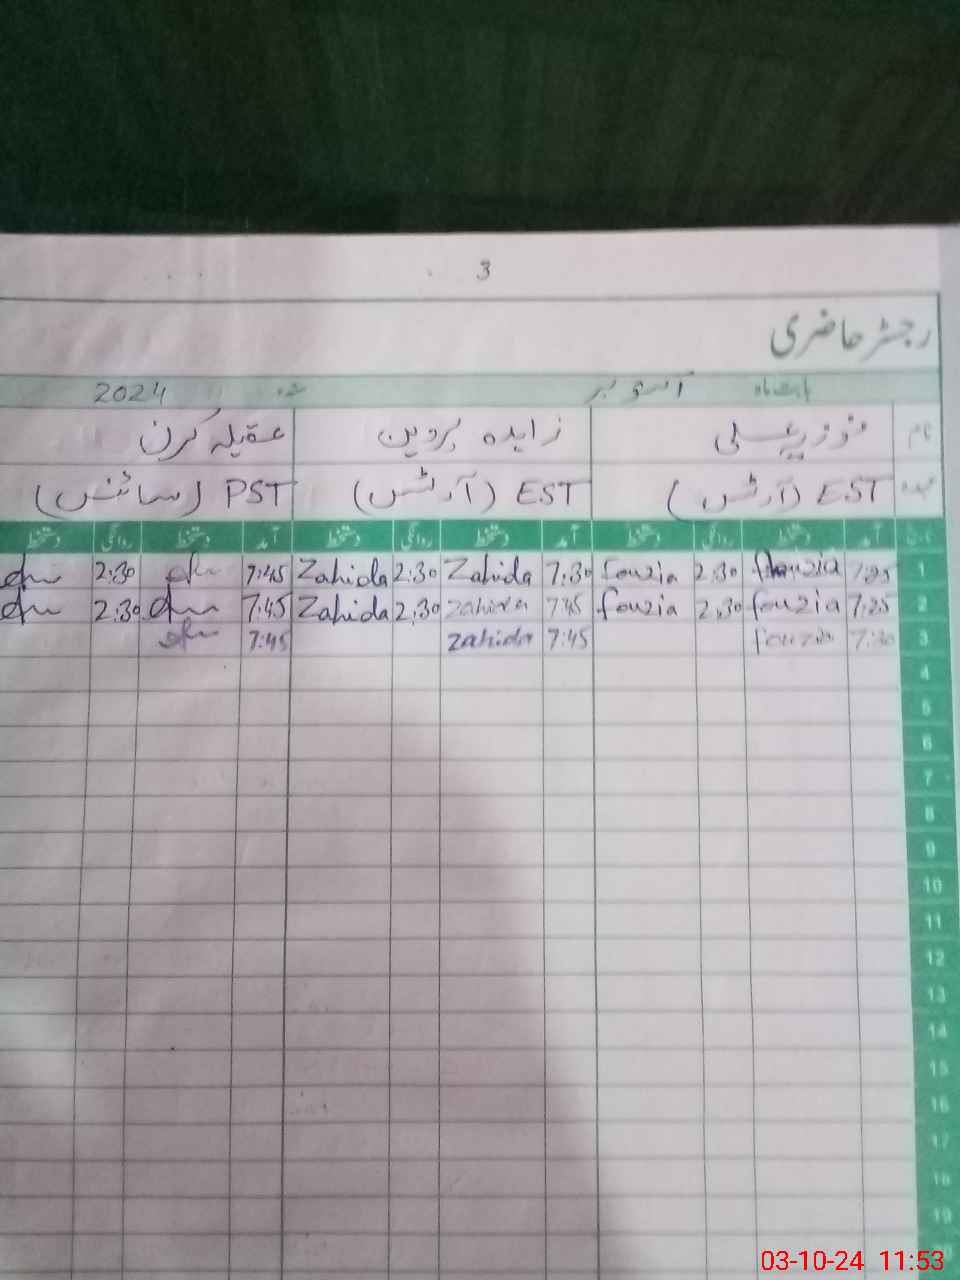 3
رجسٹر حاضری
بابت ماہ اکتوبر سنہ 2024
نام فوزیہ علی زاہدہ پروین عقیلہ کرن
عہدہ EST (آرٹس) EST (آرٹس) PST (سائنس)
آمد دستخط روانگی دستخط آمد دستخط روانگی دستخط آمد دستخط روانگی دستخط
1 7:25 fouzia 2:30 fouzia 7:30 Zahida 2:30 Zahida 7:45 2:30
2 7:25 fouzia 2:30 fouzia 7:45 Zahida 2:30 Zahida 7:45 2:30
3 7:30 fouzia 7:45 Zahida 7:45
4
5
6
7
8
9
10
11
12
13
14
15
16
17
18
19
20
03-10-24 11:53